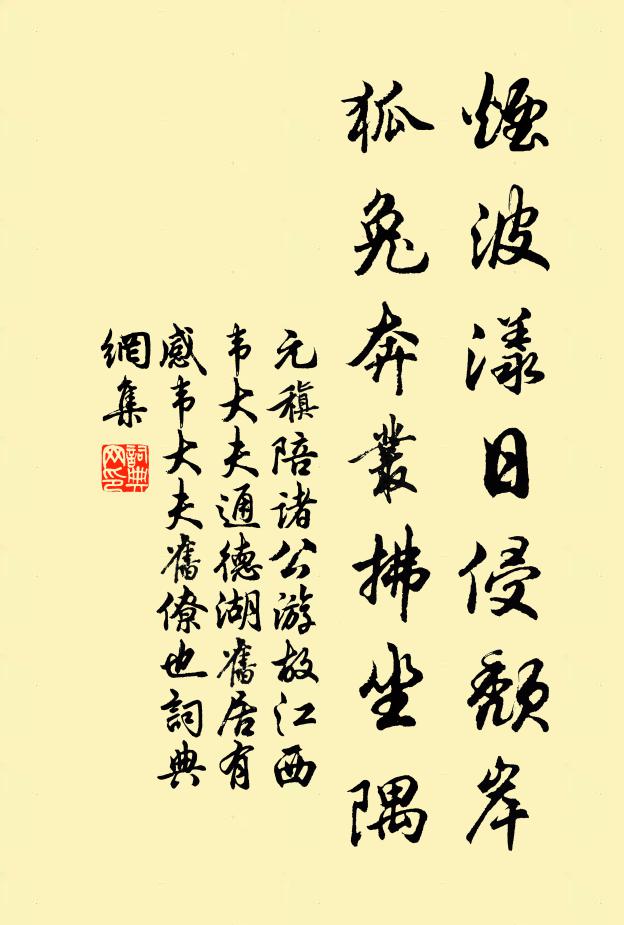 煙波漾日侵頹岸
狐兔奔叢拂坐隅
元稹陪诸公游故江西
韦大夫通德湖舊居有
感韦大夫舊僚也詞典
網集
詞典
网印